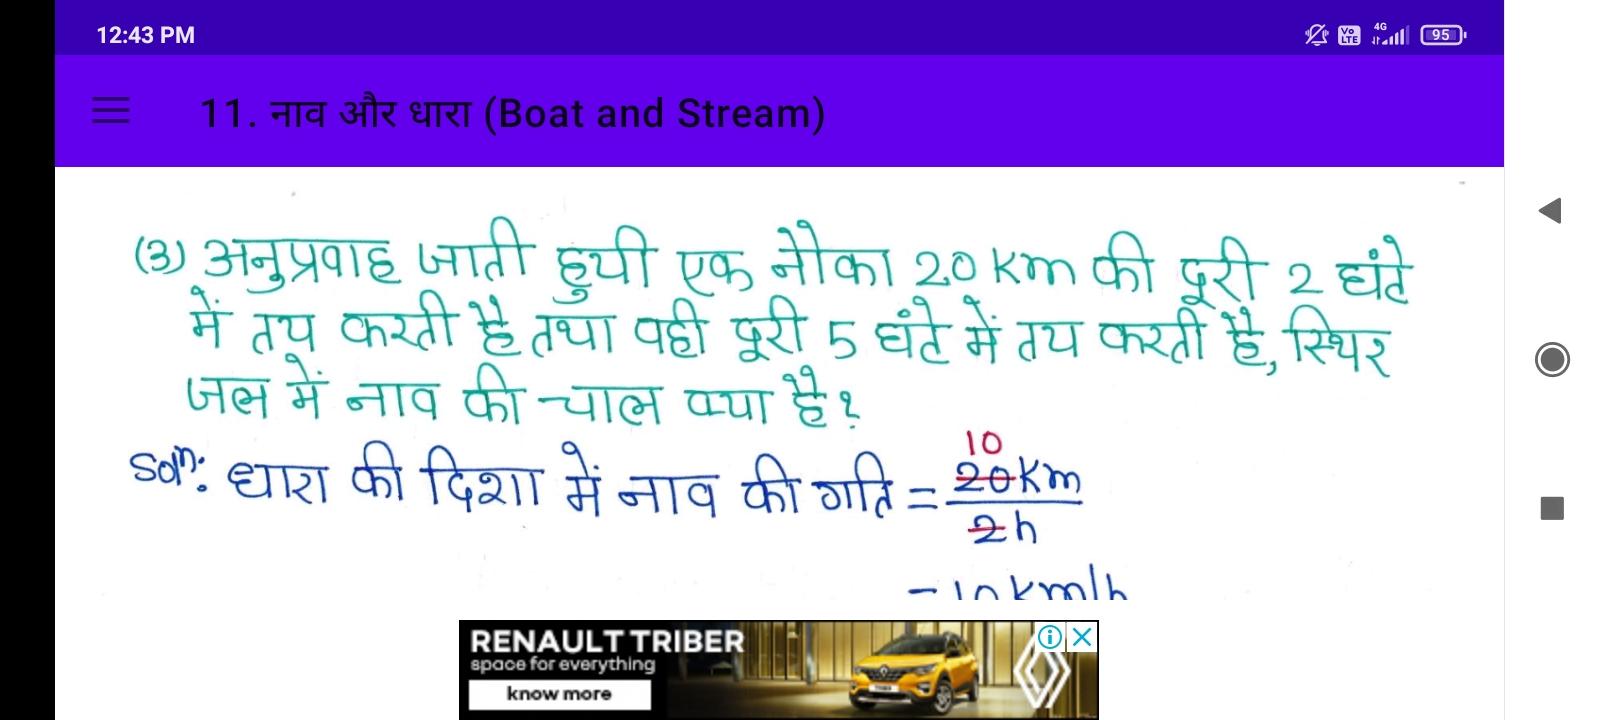 12:43 PM
Vo LTE 4G 95
11. नाव और धारा (Boat and Stream)
(3) अनुप्रवाह जाती हुयी एक नौका 20 km की दूरी 2 घंटे
में तय करती है तथा वही दूरी 5 घंटे में तय करती है, स्थिर
जल में नाव की चाल क्या है?
10
Solⁿ: धारा की दिशा में नाव की गति = 20km
2h
= 10 km/h
RENAULT TRIBER
space for everything
know more